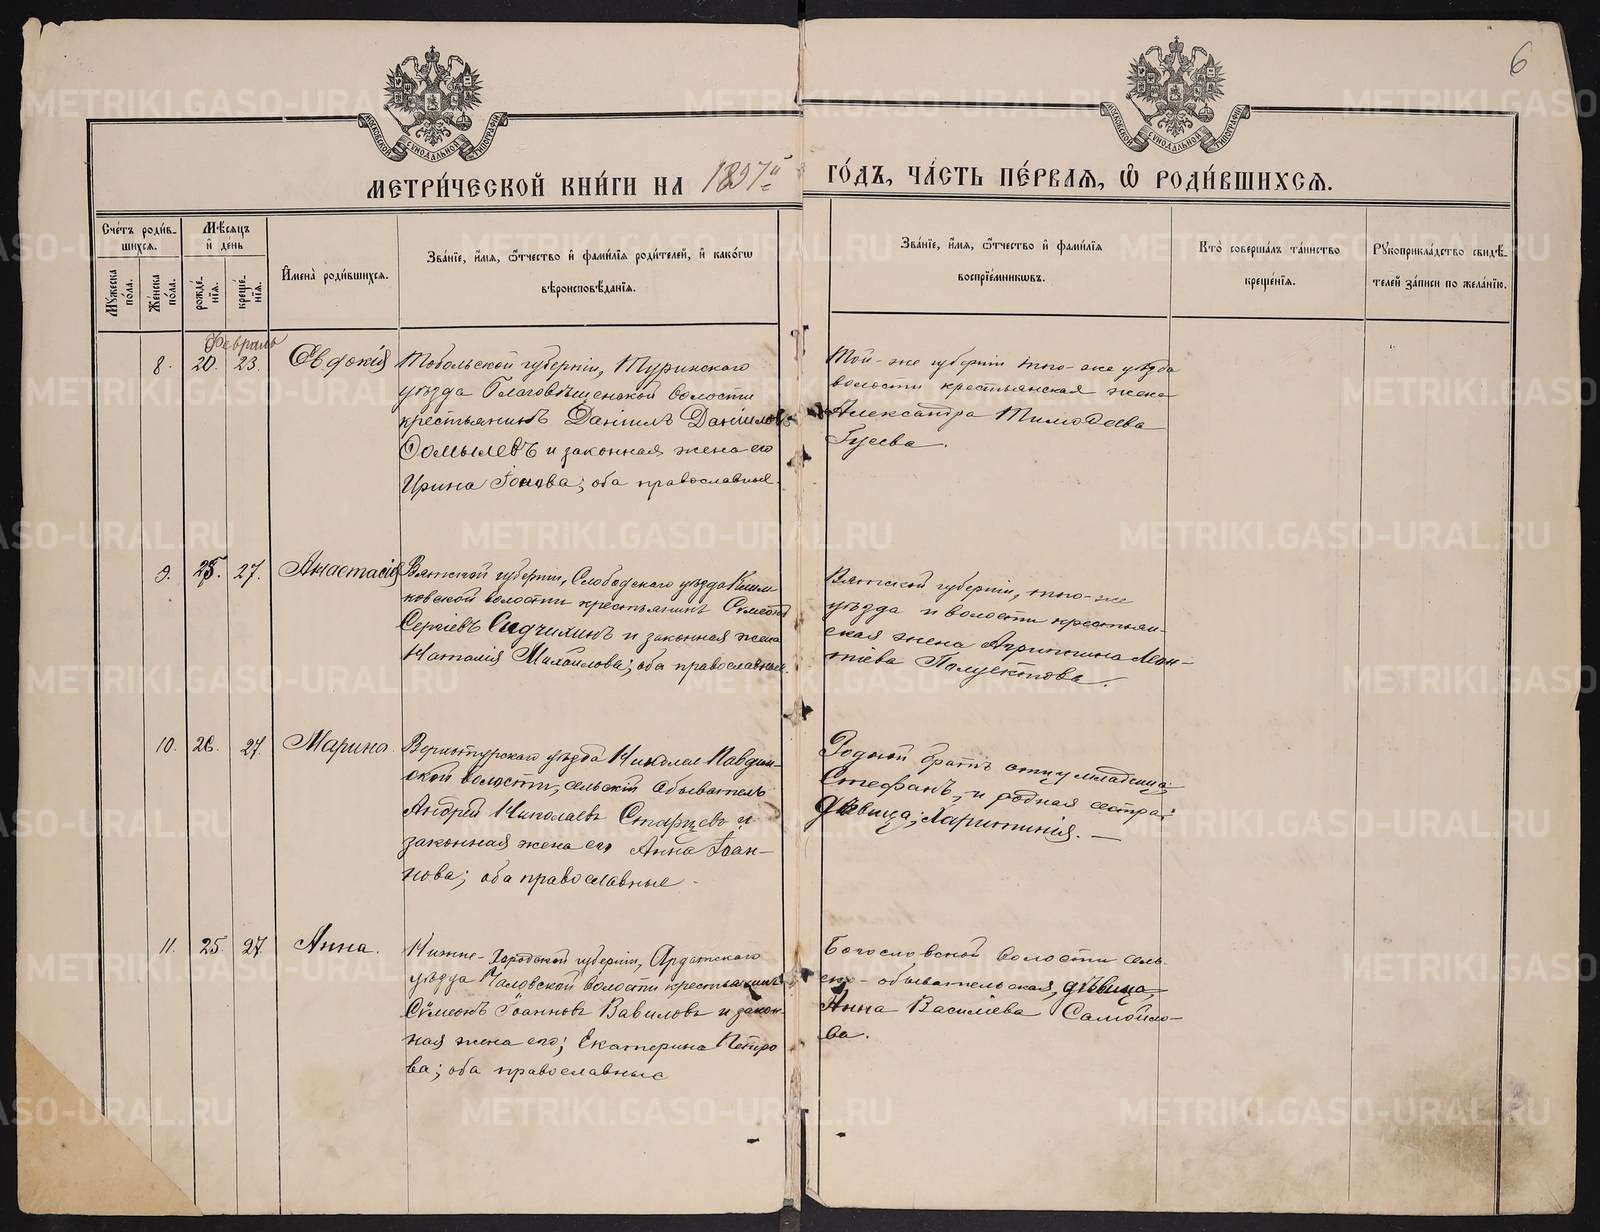 6
МОСКОВСКОЙ СѴНОДАЛЬНОЙ ТИПОГРАФІИ
МОСКОВСКОЙ СѴНОДАЛЬНОЙ ТИПОГРАФІИ
МЕТРИ́ЧЕСКОЙ КНИ́ГИ НА 1897й ГО́ДЪ, ЧА́СТЬ ПЕ́РВАЯ, Ѡ РОДИ́ВШИХСЯ.
Сче́тъ роди́в-
шихся.
Мужеска по́ла.
Же́нска по́ла.
Мѣ́сяцъ
и де́нь
рожде́-
нія.
креще́-
нія.
Имена̀ роди́вшихся.
Зва́ніе, и́мя, ѻ҆́тчество и фами́лія роди́телей, и како́гѡ
вѣроисповѣ́данія.
Зва́ніе, и́мя, ѻ҆́тчество и фами́лія
воспріе́мникѡвъ.
Кто̀ соверша́лъ та́инство
креще́нія.
Рукоприкла́дство свидѣ́-
телей за́писи по жела́нію.
Февраль
8. 20. 23. Евдокія
Тобольской губерніи, Туринскаго
уѣзда Благовѣщенской волости
крестьянинъ Даніилъ Даніиловъ
и законная жена его
Ирина Іонова; оба православные.
Той-же губерніи того-же уѣзда
волости крестьянская жена
Александра Тимоѳеева
Гусева.
9. 25. 27. Анастасія
Вятской губерніи, Слободскаго уѣзда
волости крестьянинъ Симеонъ
Сергіевъ и законная жена
Наталія Михаилова; оба православные.
Вятской губерніи, того-же
уѣзда и волости крестьян-
ская жена Агриппина Леон-
тіева Полуектова.
10. 26. 27. Марина.
Верхотурскаго уѣзда Николае Павдин-
ской волости, сельскій обыватель
Андрей Николаевъ Старцевъ и
законная жена его Анна Іоан-
нова; оба православные.
Родной братъ отцу младенца
Стефанъ, и родная сестра;
дѣвица; Харитинія.—
11. 25. 27. Анна.
Нижне-Городской губерніи, Ардатскаго
уѣзда волости крестьянинъ
Сѷмеонъ Іоанновъ Вавиловъ и закон-
ная жена его; Екатерина Петро
ва; оба православные
Богословской волости сель-
ско-обывательская, дѣвица,
Анна Васильева Самойло-
ва.
METRIKI.GASO-URAL.RU